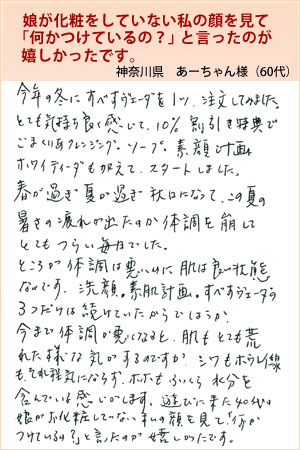 娘が化粧をしていない私の顔を見て
「何かつけているの？」と言ったのが
嬉しかったです。
神奈川県　あーちゃん様（60代）
今年の冬にすべすヴェーダを1ツ、注文してみました。
とても気持ち良く感じて、10％割引き特典で
ごまくりあクレンジング・ソープ。素顔計画。
ホワイティーダもかえて、スタートしました。
春が過ぎ夏が過ぎ秋口になって、この夏の
暑さの疲れが出たのか体調を崩して
とてもつらい毎日でした。
ところが体調は悪いのに肌は良い状態
なのです。洗顔。素肌計画。すべすヴェーダの
3つだけは続けていたからでしょうか？
今まで体調が悪くなると、肌もとても荒
れた様な気がするのですが、シワもホウレイ線
も、それ程気にならず、ホホもふっくら水分を
含んでいる感じがします。遊びに来た40代の
娘がお化粧していない私の顔を見て「何か
つけているの？」と言ったのが嬉しかったです。